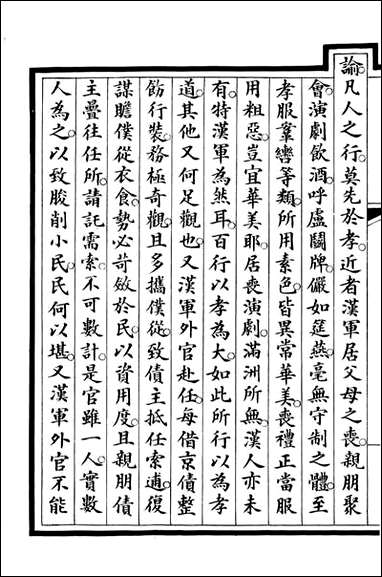 諭凡人之行莫先於孝近者漢軍居父母之喪親朋聚
會演劇飲酒呼盧鬭牌儼如筵燕毫無守制之體至
孝服鞌轡等類所用素色皆異常華美喪禮正當服
用粗惡豈宜華美耶居喪演劇滿洲所無漢人亦未
有特漢軍為然耳百行以孝為大如此所行以為孝
道其他又何足觀也又漢軍外官赴任每借京債整
飭行裝務極奇觀且多攜僕從致債主抵任索逋復
謀贍僕從衣食勢必苛斂於民以資用度且親朋債
主疊往任所請託需索不可數計是官雖一人實數
人為之以致朘削小民民何以堪又漢軍外官不能